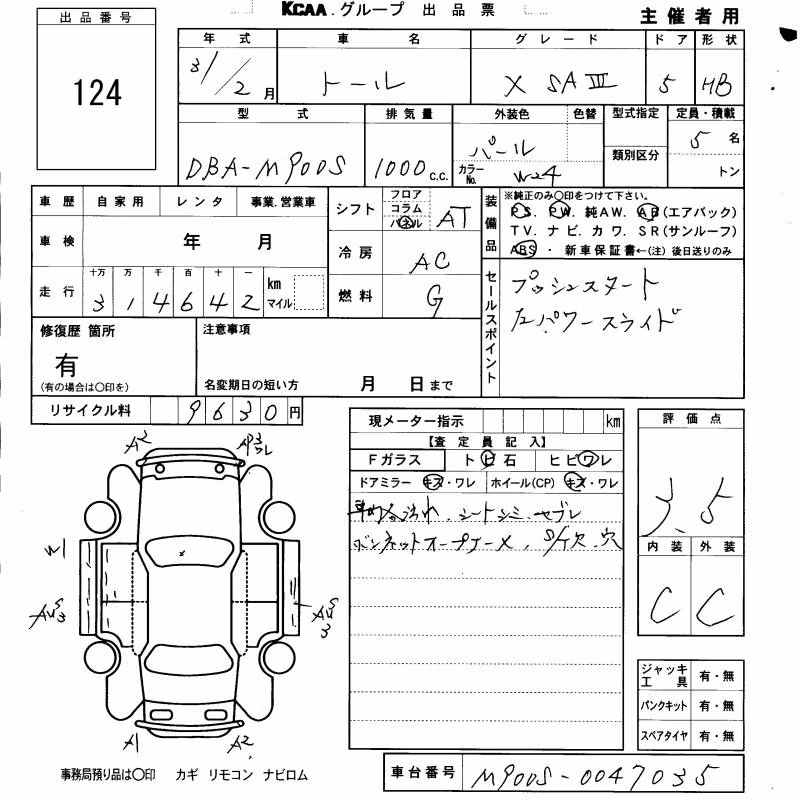 KCAA.グループ 出品票
主催者用
出品番号
124
年式 車名 グレード ドア 形状
31/2月 トール X SAⅢ 5 HB
型式 排気量 外装色 色替 型式指定 定員・積載
DBA-M900S 1000c.c. パール カラーNo. W24 類別区分 5名
トン
車歴 自家用 レンタ 事業.営業車
車検 年 月
走行 十万 万 千 百 十 一 km マイル
314642
シフト フロア コラム パネル AT
冷房 AC
燃料 G
装備品
※純正のみ〇印をつけて下さい。
PS. PW. 純AW. AB(エアバック)
TV. ナビ. カワ. SR(サンルーフ)
ABS・新車保証書←(注) 後日送りのみ
セールスポイント
プッシュスタート
左パワースライド
修復歴 箇所
有
(有の場合は〇印を)
注意事項
名変期日の短い方 月 日まで
リサイクル料 9630円
現メーター指示 km
【査定員記入】
Fガラス トビ石 ヒビワレ
ドアミラー キズ・ワレ ホイール(CP) キズ・ワレ
車内汚れ、シートシミ、ヤブレ
ボンネットオープナーメ、S/欠、穴
評価点
3.5
内装 外装
C C
A2
AP3 ワレ
W1
AUS3
AUS3
A1
A2
ジャッキ工具 有・無
パンクキット 有・無
スペアタイヤ 有・無
事務局預り品は〇印 カギ リモコン ナビロム
車台番号 M900S-0047035